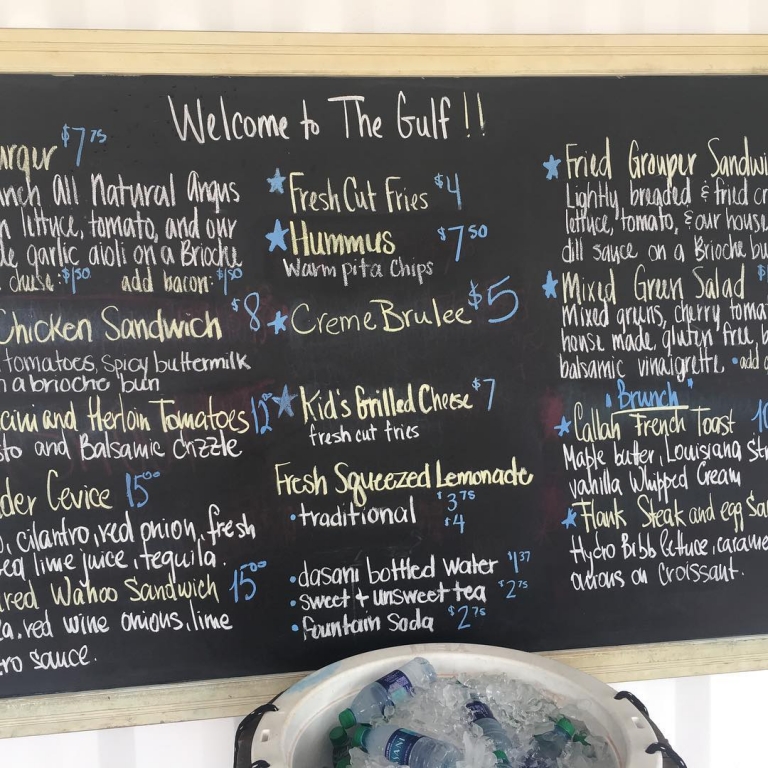 Welcome to The Gulf !!
urger $7.75
nch All Natural Angus
n lettuce, tomato, and our
de garlic aioli on a Brioche
cheese: $1.50 add bacon: $1.50
Chicken Sandwich $8
tomatoes, spicy buttermilk
n a brioche bun
cini and Herloin Tomatoes 12.00
sto and Balsamic drizzle
der Cevice 15.00
o, cilantro, red onion, fresh
ea lime juice, tequila.
red Wahoo Sandwich 15.00
a, red wine onions, lime
ro sauce.
Fresh Cut Fries $4
Hummus $7.50
Warm pita Chips
Creme Brulee $5
Kid's Grilled Cheese $7
fresh cut fries
Fresh Squeezed Lemonade
• traditional $3.75
$4
• dasani bottled water $1.37
• sweet & unsweet tea $2.75
• fountain soda $2.75
Fried Grouper Sandwi
Lightly breaded & fried cr
lettuce, tomato, & our house
dill sauce on a Brioche bu
Mixed Green Salad $
Mixed greens, cherry tomat
house made, gluten free, b
balsamic vinaigrette • add c
"Brunch"
Callah French Toast 10
Maple butter, Louisiana Str
vanilla Whipped Cream
Flank Steak and egg Sa
Hydro Bibb lettuce, carame
onions on Croissant.